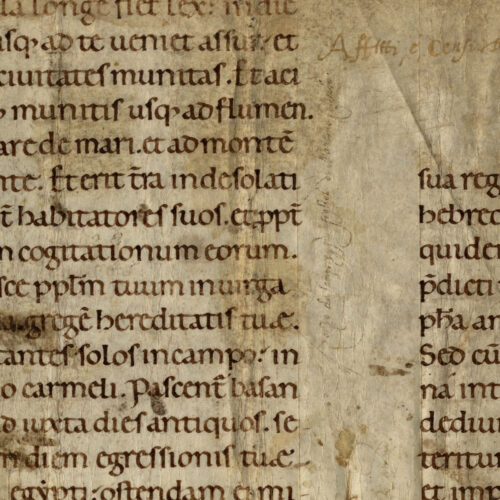 la longe fiet lex: in die
usq; ad te ueniet assur. et
ciuitates munitas. Et aci
munitis usq; ad flumen.
are de mari. et ad montē
te. Et erit t̄ra in desolati
t̄ habitatores suos. et ppt̄
n cogitationum eorum.
sce pplm̄ tuum in uirga
a. gregē hereditatis tuæ.
tantes solos in campo: in
o carmeli. Pascent̄ basan
d iuxta dies antiquos. se
n diem egressionis tuæ
egypti: ostendam ei mi
Affitti, e Censi
sua reg
hebrec
quider
p̄dicti
pħa an
Sed cū
na int
dediur
teritur
et imp